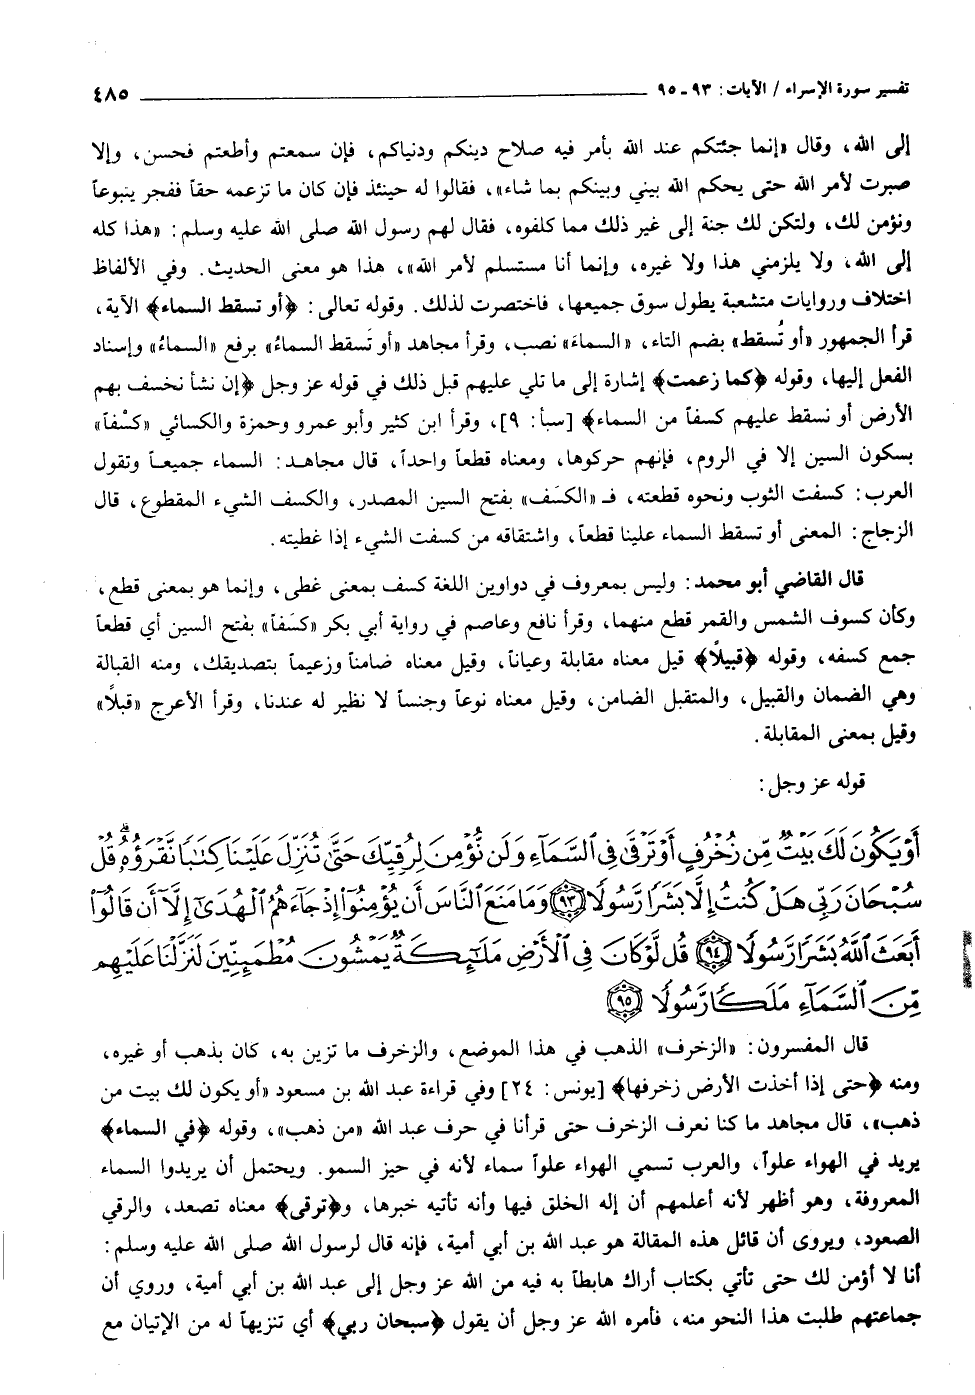 تفسير سورة الإسراء / الآيات: ٩٣ ـ ٩٥ ٤٨٥
إلى الله، وقال «إنما جئتكم عند الله بأمر فيه صلاح دينكم ودنياكم، فإن سمعتم وأطعتم فحسن، وإلا
صبرت لأمر الله حتى يحكم الله بيني وبينكم بما شاء»، فقالوا له حينئذ فإن كان ما تزعمه حقاً ففجر ينبوعاً
ونؤمن لك، ولتكن لك جنة إلى غير ذلك مما كلفوه، فقال لهم رسول الله صلى الله عليه وسلم: «هذا كله
إلى الله، ولا يلزمني هذا ولا غيره، وإنما أنا مستسلم لأمر الله»، هذا هو معنى الحديث. وفي الألفاظ
اختلاف وروايات متشعبة يطول سوق جميعها، فاختصرت لذلك. وقوله تعالى: ﴿أو تسقط السماء﴾ الآية،
قرأ الجمهور «أو تُسقط» بضم التاء، «السماءَ» نصب، وقرأ مجاهد «أو تَسقط السماءُ» برفع «السماءُ» وإسناد
الفعل إليها، وقوله ﴿كما زعمت﴾ إشارة إلى ما تلي عليهم قبل ذلك في قوله عز وجل ﴿إن نشأ نخسف بهم
الأرض أو نسقط عليهم كسفاً من السماء﴾ [سبأ: ٩]، وقرأ ابن كثير وأبو عمرو وحمزة والكسائي «كسْفاً»
بسكون السين إلا في الروم، فإنهم حركوها، ومعناه قطعاً واحداً، قال مجاهد: السماء جميعاً وتقول
العرب: كسفت الثوب ونحوه قطعته، فـ «الكسَف» بفتح السين المصدر، والكسف الشيء المقطوع، قال
الزجاج: المعنى أو تسقط السماء علينا قطعاً، واشتقاقه من كسفت الشيء إذا غطيته.
قال القاضي أبو محمد: وليس بمعروف في دواوين اللغة كسف بمعنى غطى، وإنما هو بمعنى قطع،
وكأن كسوف الشمس والقمر قطع منهما، وقرأ نافع وعاصم في رواية أبي بكر «كسَفاً» بفتح السين أي قطعاً
جمع كسفه، وقوله ﴿قبيلاً﴾ قيل معناه مقابلة وعياناً، وقيل معناه ضامناً وزعيماً بتصديقك، ومنه القبالة
وهي الضمان والقبيل، والمتقبل الضامن، وقيل معناه نوعاً وجنساً لا نظير له عندنا، وقرأ الأعرج «قبلاً»
وقيل بمعنى المقابلة.
قوله عز وجل:
أَوْ يَكُونَ لَكَ بَيْتٌ مِّن زُخْرُفٍ أَوْ تَرْقَىٰ فِي السَّمَآءِ وَلَن نُّؤْمِنَ لِرُقِيِّكَ حَتَّىٰ تُنَزِّلَ عَلَيْنَا كِتَٰبًا نَّقْرَؤُهُۥ ۗ قُلْ
سُبْحَانَ رَبِّي هَلْ كُنتُ إِلَّا بَشَرًا رَّسُولًا ﴿٩٣﴾ وَمَا مَنَعَ النَّاسَ أَن يُؤْمِنُوٓا إِذْ جَآءَهُمُ الْهُدَىٰٓ إِلَّآ أَن قَالُوٓا
أَبَعَثَ اللَّهُ بَشَرًا رَّسُولًا ﴿٩٤﴾ قُل لَّوْ كَانَ فِي الْأَرْضِ مَلَٰٓئِكَةٌ يَمْشُونَ مُطْمَئِنِّينَ لَنَزَّلْنَا عَلَيْهِم
مِّنَ السَّمَآءِ مَلَكًا رَّسُولًا ﴿٩٥﴾
قال المفسرون: «الزخرف» الذهب في هذا الموضع، والزخرف ما تزين به، كان بذهب أو غيره،
ومنه ﴿حتى إذا أخذت الأرض زخرفها﴾ [يونس: ٢٤] وفي قراءة عبد الله بن مسعود «أو يكون لك بيت من
ذهب»، قال مجاهد ما كنا نعرف الزخرف حتى قرأنا في حرف عبد الله «من ذهب»، وقوله ﴿في السماء﴾
يريد في الهواء علواً، والعرب تسمي الهواء علواً سماء لأنه في حيز السمو. ويحتمل أن يريدوا السماء
المعروفة، وهو أظهر لأنه أعلمهم أن إله الخلق فيها وأنه تأتيه خبرها، و﴿ترقى﴾ معناه تصعد، والرقي
الصعود، ويروى أن قائل هذه المقالة هو عبد الله بن أبي أمية، فإنه قال لرسول الله صلى الله عليه وسلم:
أنا لا أؤمن لك حتى تأتي بكتاب أراك هابطاً به فيه من الله عز وجل إلى عبد الله بن أبي أمية، وروي أن
جماعتهم طلبت هذا النحو منه، فأمره الله عز وجل أن يقول ﴿سبحان ربي﴾ أي تنزيهاً له من الإتيان مع